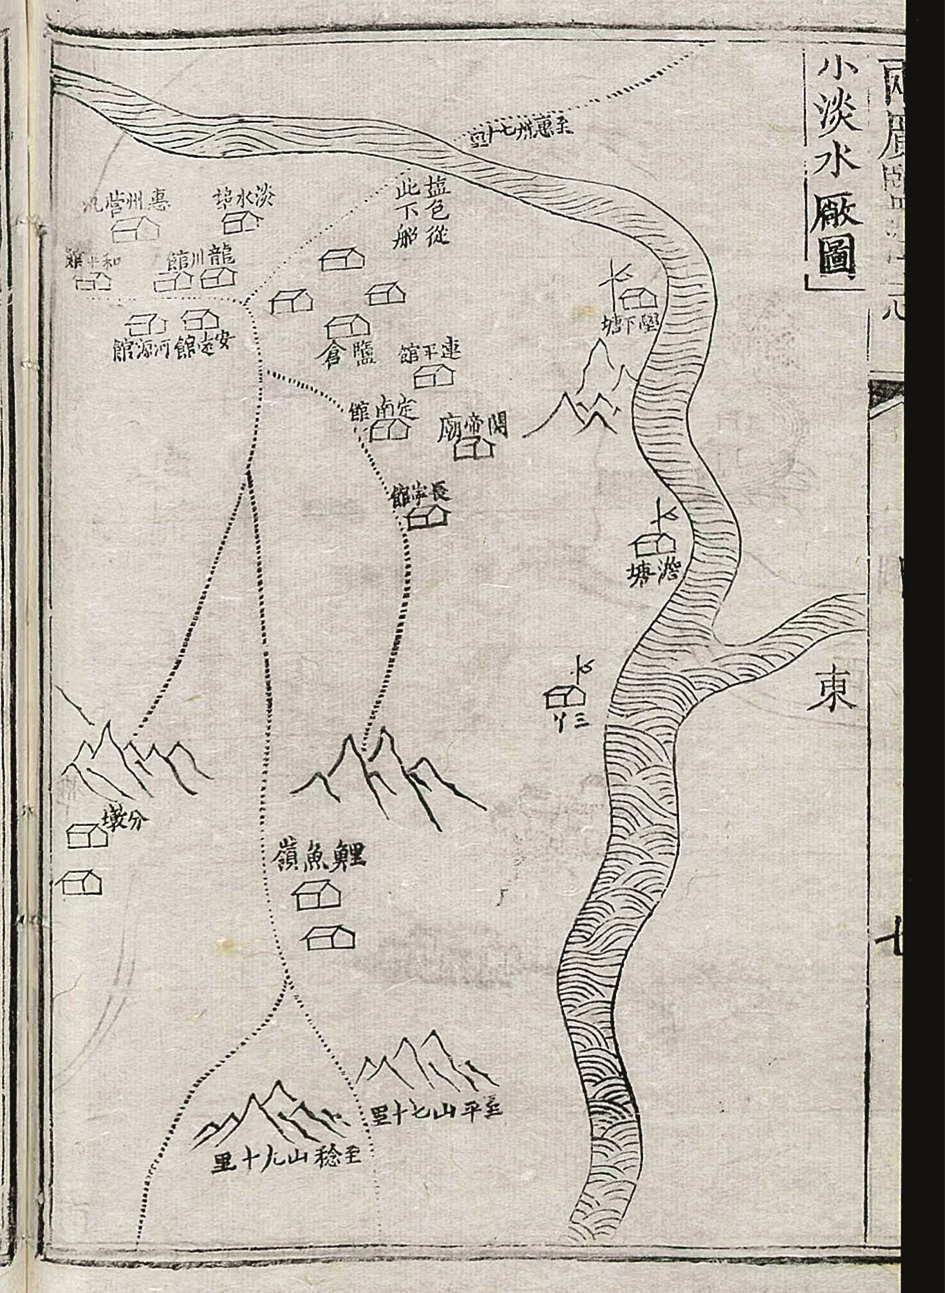 小淡水厰圖
至惠州七十里
塩包從
此下船
淡水埠
惠州營汛
龍川館
和平館
安遠館
河源館
鹽倉
連平館
定南館
關帝廟
長寧館
下塘
塘
東
三丫
分墩
鯉魚嶺
至平山七十里
至稔山九十里
七